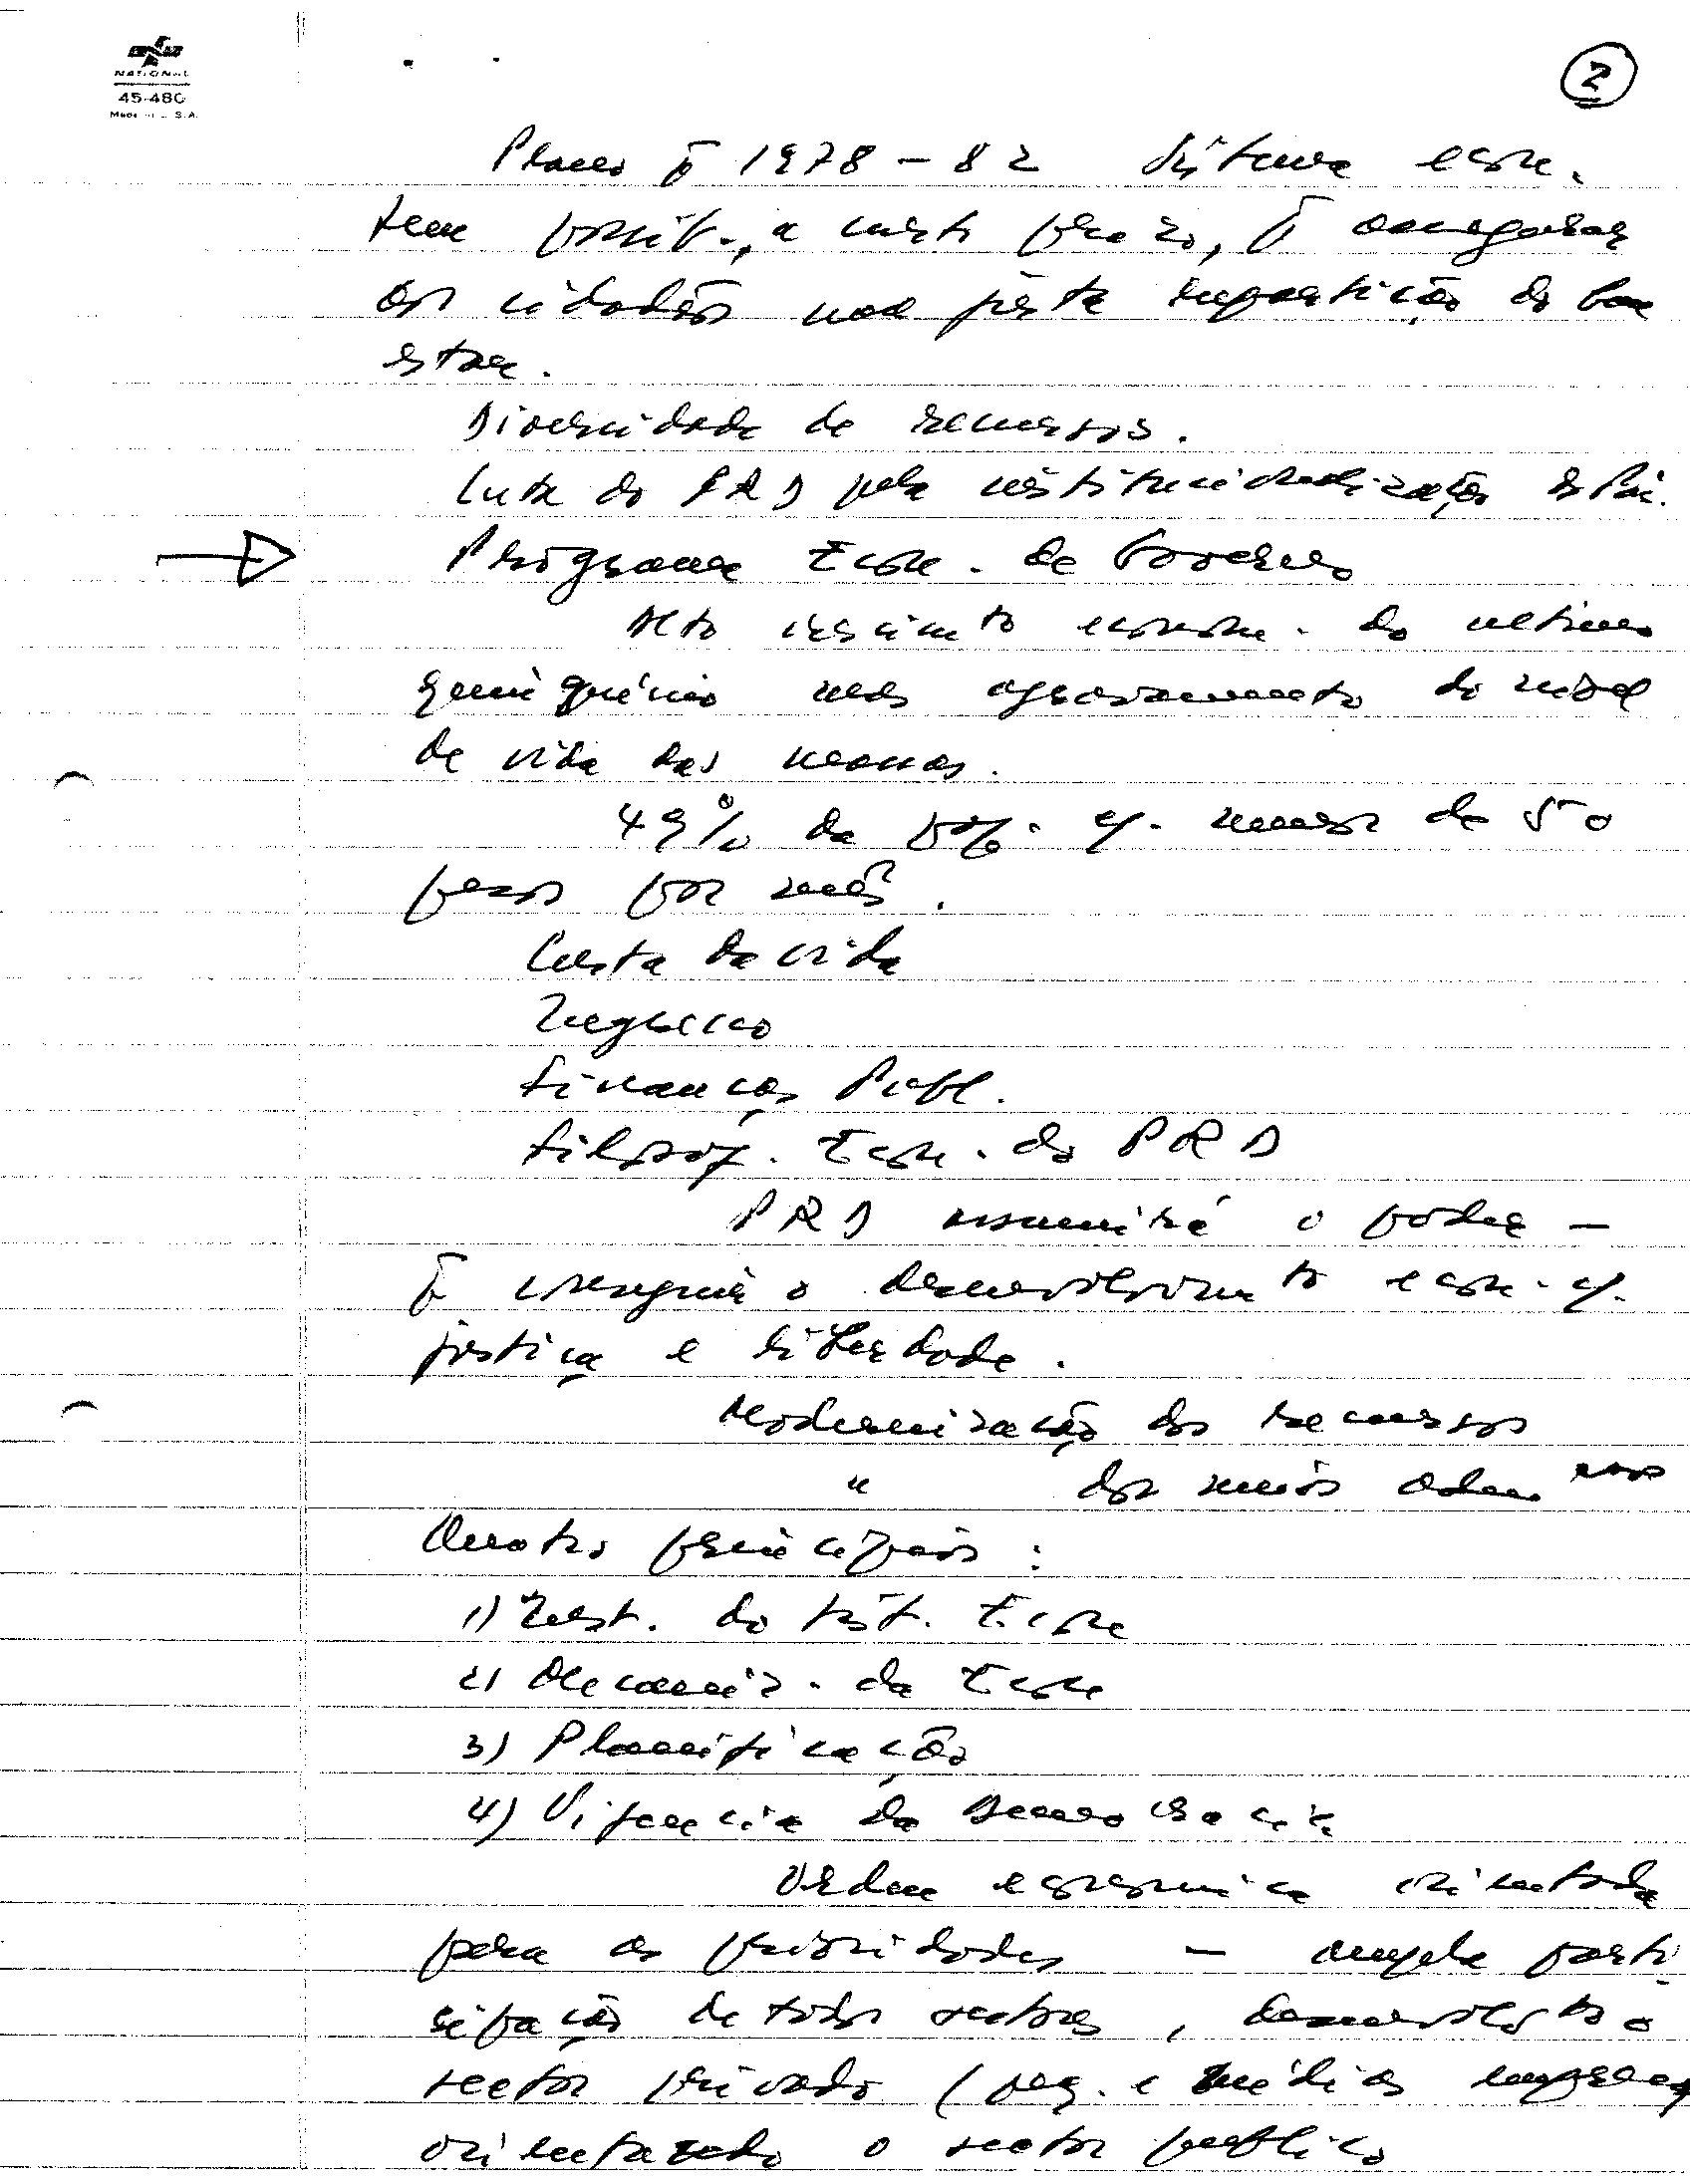 NATIONAL
45-480
2
Plano p̄ 1978-82 Sistema econ.
tem possib., a curto prazo, p̄ assegurar
aos cidadãos uma justa repartição do bem
estar.
Diversidade de recursos.
Luta do PRD pela institucionalização do Paí.
Programa Econ. de Governo
Alto crescimto econom. do ultimo
quinquénio mas agravamento do nivel
de vida das massas.
49% da pop. c/. menos de 50
pesos por mês.
Custa da vida
Finanças Publ.
Filosof. Econ. do PRD
PRD assumirá o poder -
p̄ conseguir o desenvolvimto econ. c/.
justiça e liberdade.
Modernização dos recursos
" dos meios
Quatro principais:
1) Rest. do Sist. Econ
2) da Econ
3) Planificação
4) Vigencia da Democracia
Ordem economica orientada
para as prioridades - ampla parti
cipação de todos sectores, desenvolvto o
sector privado (peq. e médias empresas
orientando o sector publico